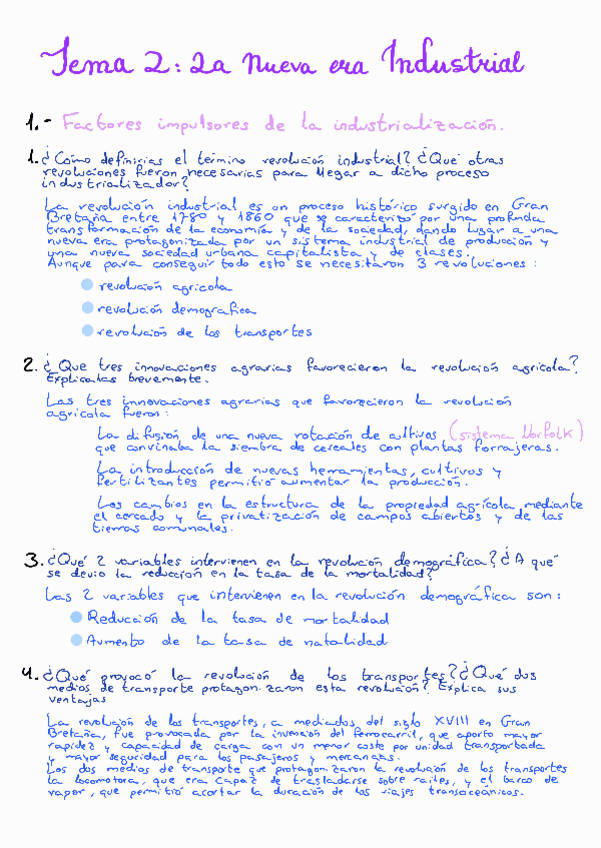 Tema 2: La Nueva era Industrial
1.- Factores impulsores de la industrialización.
1. ¿Cómo definirias el término revolución industrial? ¿Qué otras
revoluciones fueron necesarias para llegar a dicho proceso
industrializador?
La revolución industrial es un proceso histórico surgido en Gran
Bretaña entre 1780 y 1860 que se caracterizó por una profunda
transformación de la economía y de la sociedad, dando lugar a una
nueva era protagonizada por un sistema industrial de producción y
una nueva sociedad urbana capitalista y de clases.
Aunque para conseguir todo esto se necesitaron 3 revoluciones:
revolución agrícola
revolución demografica
revolución de los transportes
2. ¿Que tres innovaciones agrarias favorecieron la revolución agricola?
Explicalas brevemente.
Las tres innovaciones agrarias que favorecieron la revolución
agricola fueron:
La difusión de una nueva rotación de cultivos (sistema Norfolk)
que convinaba la siembra de cereales con plantas forrajeras.
La introducción de nuevas herramientas, cultivos y
fertilizantes permitió aumentar la producción.
Los cambios en la estructura de la propiedad agrícola mediante
el cercado y la privatización de campos abiertos y de las
tierras comunales.
3. ¿Qué 2 variables intervienen en la revolución demográfica? ¿A qué
se devio la reducción en la tasa de la mortalidad?
Las 2 variables que intervienen en la revolución demográfica son:
Reducción de la tasa de mortalidad
Aumento de la tasa de natalidad
4. ¿Qué provocó la revolución de los transportes? ¿Qué dos
medios de transporte protagonizaron esta revolución? Explica sus
ventajas
La revolución de los transportes, a mediados del siglo XVIII en Gran
Bretaña, fue provocada por la invención del ferrocarril, que aporto mayor
rapidez y capacidad de carga con un menor coste por unidad transportada
y mayor seguridad para los pasajeros y mercancias.
Los dos medios de transporte que protagonizaron la revolución de los transportes
la locomotora, que era capaz de trasladarse sobre railes, y el barco de
vapor, que permitió acortar la duración de los viajes transoceánicos.